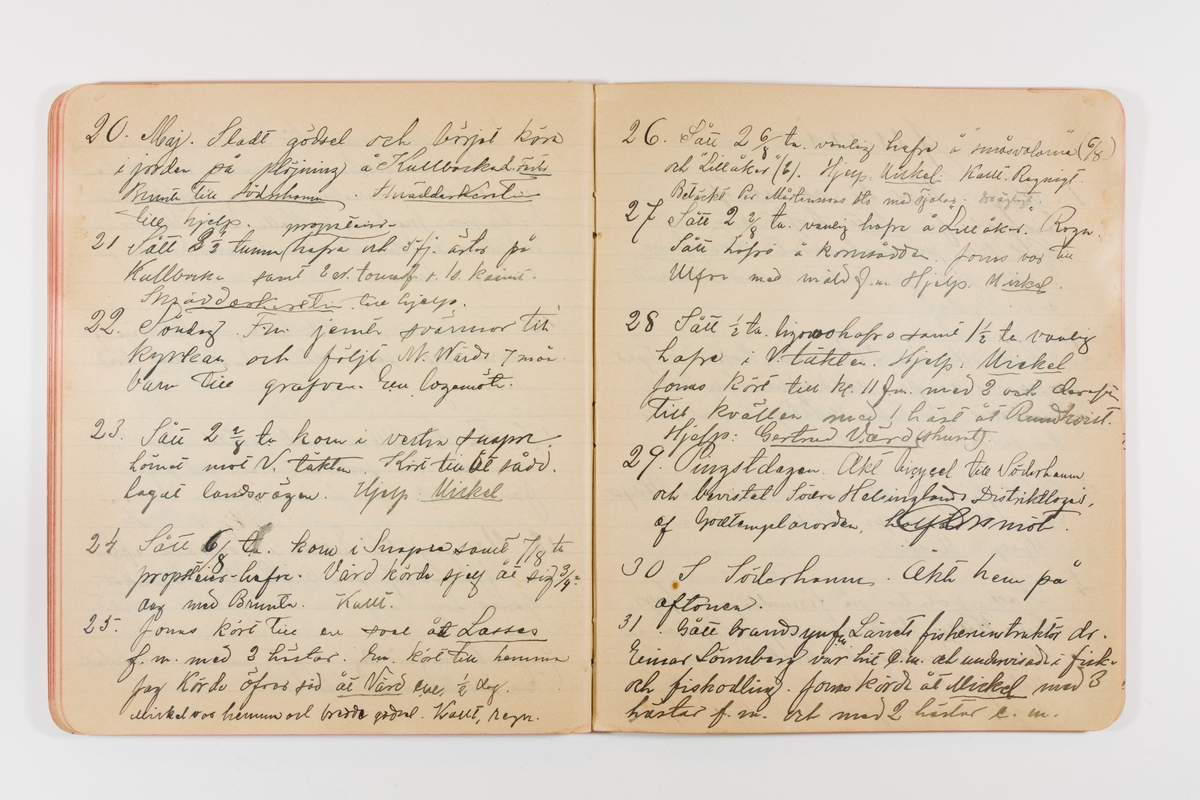 20. Maj. Slädt gödsel och börjat köra
i jorden på plöjning å Kullbacka. Ärts
Brunte till Söderhamn. Skrädderkerstin
till hjelp. propsteier-
21 Sått 2 1/3 tunna hafra och 5 fj. ärter på
Kullbacka samt 2 st. tomalf
Skrädderkerstin till hjelp.
22. Söndag. Fru jemte svärmor till
kyrkan och följt N. Värds 7 mån.
barn till grafven. Em. logemöte.
23. Sått 2 2/8 ta korn i vestra snapra
hörnet mot V. täkten. Kört till åt sådd.
lagat landsvägen. Hjelp Mickel
24 Sått 6/8 ta. korn i Snapra samt 7/8 ta
propsteier-hafre. Värd körde sjelf åt sig 3/4
dag med Brunte. Kallt.
25. Jonas kört till en såal åt Lasses
f. m. med 2 hästar. Em. kört till hemma
Jag körde öfver säd åt Värd em. 1/2 dag.
Mickel var hemma och bredde gödsel. Kallt, regn.
26. Sått 2 6/8 ta. vanlig hafre å småsvalarna (6/8)
och "Lillåker" (6). Hjelp. Mickel. Kallt. Regnigt.
Betäckt Per Mårtenssons sto med Sjokas.
27 Sått 2 2/8 ta. vanlig hafre å "Lillåker." Regn.
Sått hafre å kornsådden. Jonas var till
Ulfra med mäld f.m. Hjelp. Mickel.
28 Sått 1/2 ta. ligowohafre samt 1 1/2 ta. vanlig
hafre i V. täkten. Hjelp: Mickel
Jonas kört till kl. 11 f.m. med 2 och derefter
till kvällen med 1 häst åt Rundkvist.
Hjelp: Gertrud Värd (skurat).
29. Pingstdagen. Åkt bicyccel till Söderhamn
och bevistat Södra Helsinglands Distriktloges,
af Godtemplarorden, halfårsmöt.
30 I Söderhamn. Åkte hem på
aftonen.
31. Gått brandsyn f.m. Länets fiskeriinstruktör dr.
Einar Lönnberg var hit e.m. och undervisade i fisk-
och fiskodling. Jonas körde åt Mickel med 3
hästar f. m. och med 2 hästar e. m.